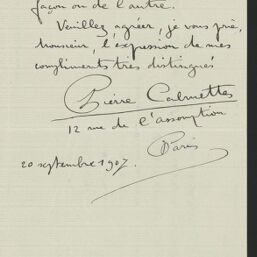 façon ou de l'autre.
Veuillez agréer, je vous prie,
monsieur, l'expression de mes
compliments très distingués
Pierre Calmettes
12 rue de l'assomption
Paris
20 septembre 1907.